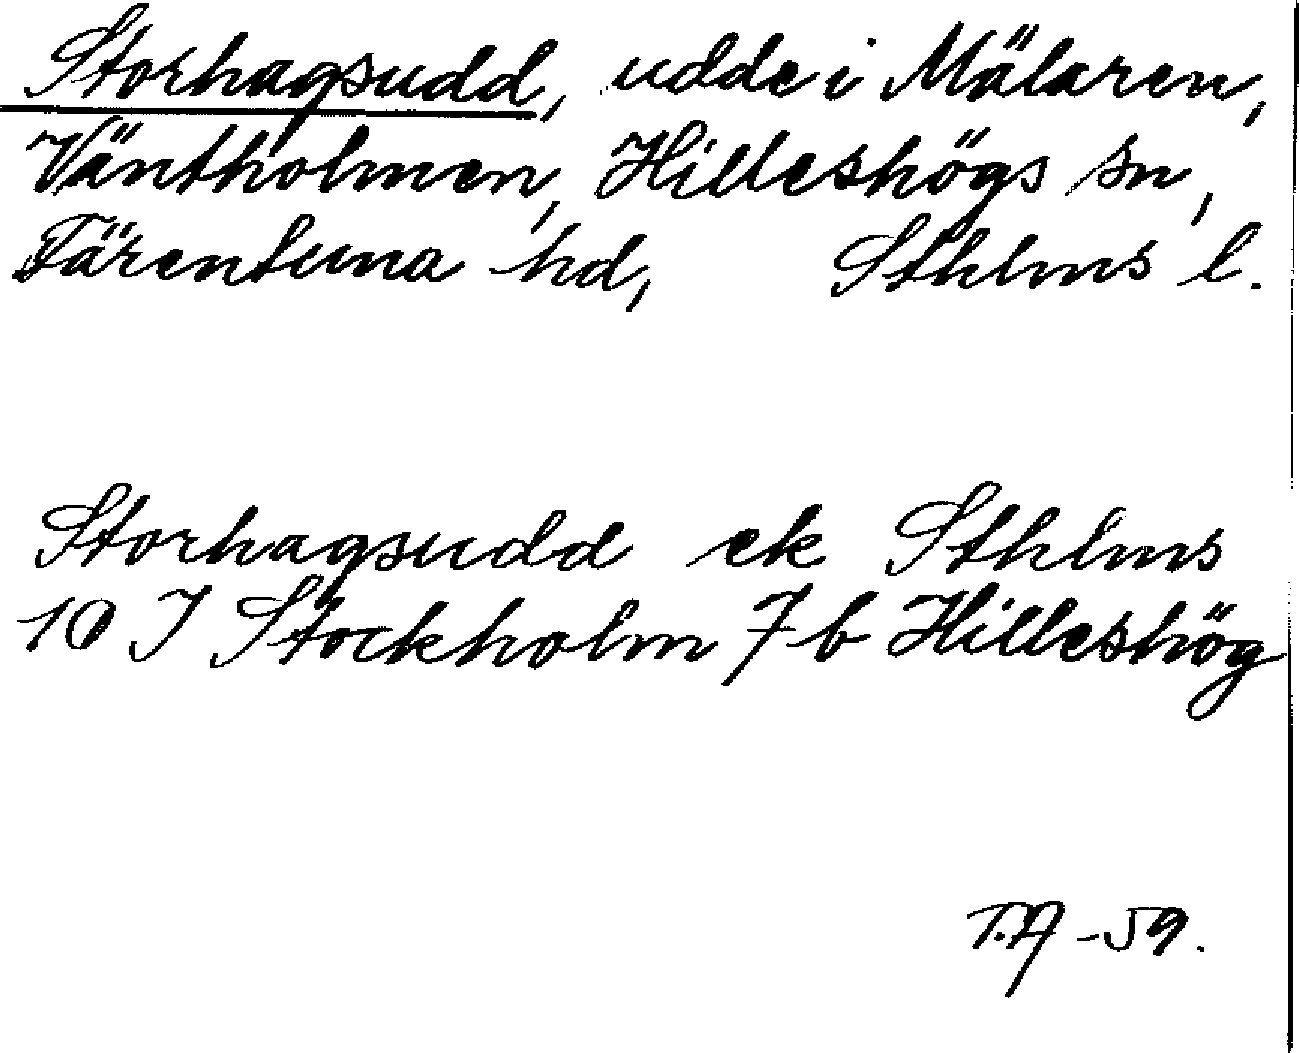 Storhagsudd, udde i Mälaren,
Väntholmen, Hilleshögs sn,
Färentuna hd, Sthlms l.
Storhagsudd ek Sthlms
10 I Stockholm 7b Hilleshög
T.A -59.